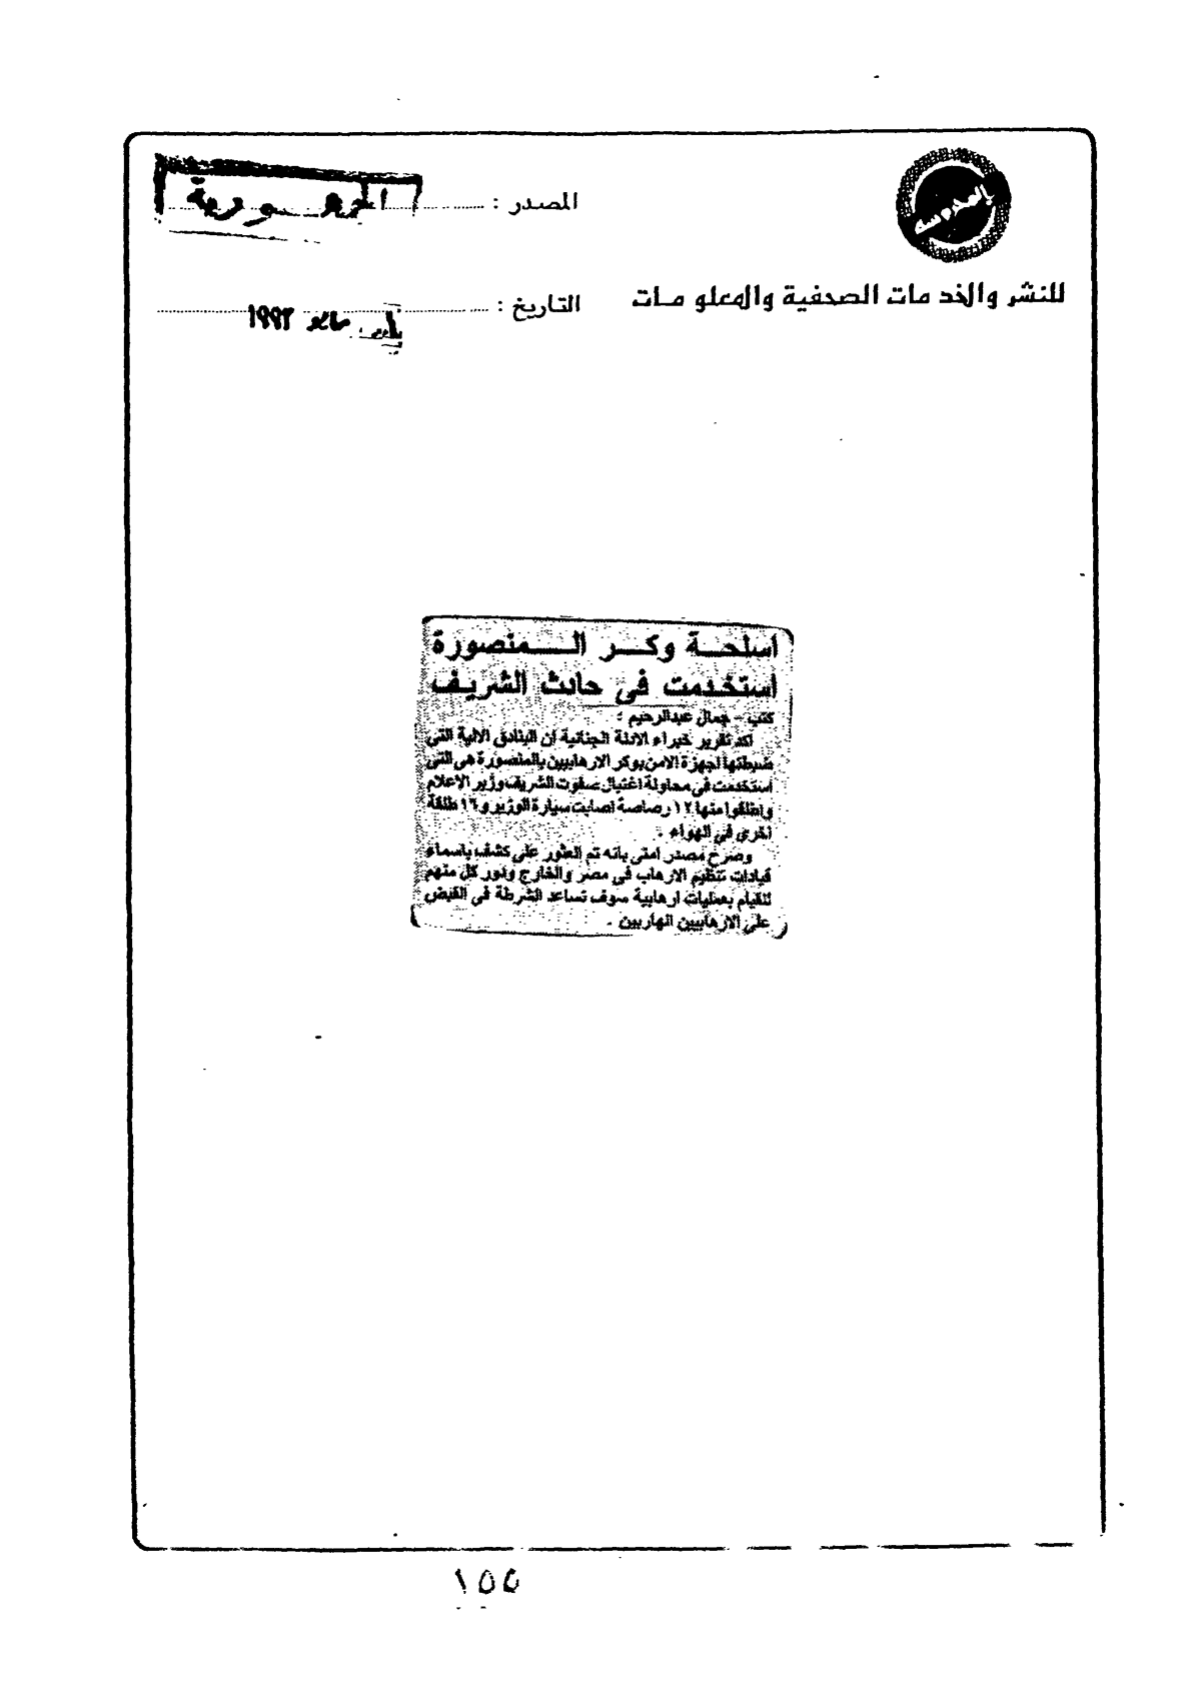 المحروسة
للنشر والخد مات الصحفية والمعلو مـات
المصدر : الجمهورية
التاريخ : مايو ١٩٩٣
اسلحــة وكــر الـــمنصورة
استخدمت في حادث الشريف
كتب - جمال عبدالرحيم :
اكد تقرير خبراء الادلة الجنائية ان البنادق الالية التى
ضبطتها اجهزة الامن بوكر الارهابيين بالمنصورة هى التى
استخدمت في محاولة اغتيال صفوت الشريف وزير الاعلام
واطلقوا منها ١٢ رصاصة اصابت سيارة الوزير و١٦ طلقة
اخرى في الهواء .
وصرح مصدر امنى بانه تم العثور على كشف باسماء
قيادات تنظيم الارهاب في مصر والخارج ودور كل منهم
للقيام بعمليات ارهابية سوف تساعد الشرطة في القبض
على الارهابيين الهاربين .
١٥٥